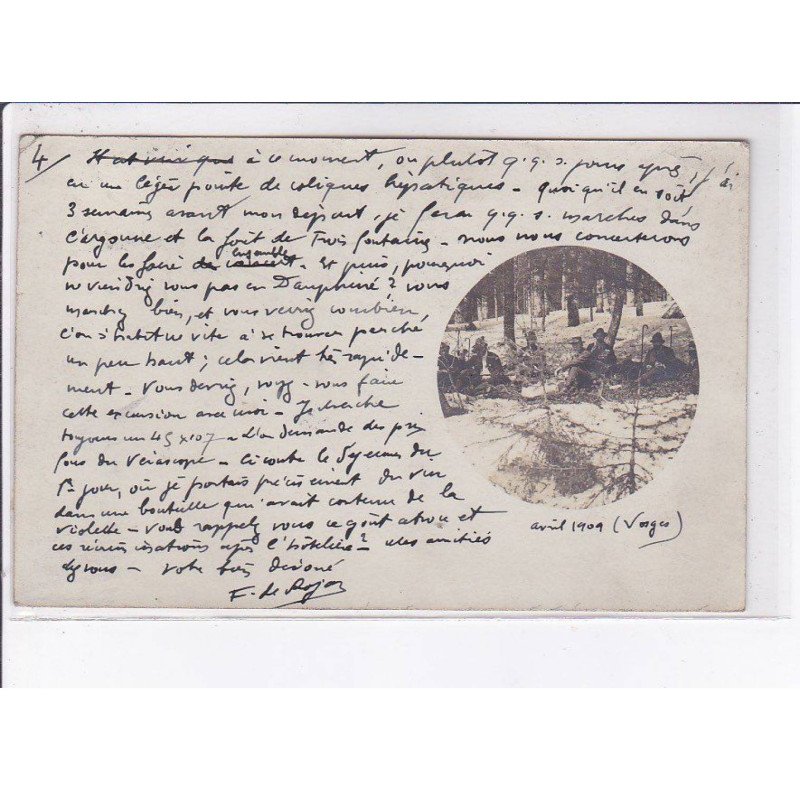 4/ à ce moment, ou plutôt q.q.s. jours après, j'ai
eu une légère pointe de coliques hépatiques - quoiqu'il en soit
3 semaines avant mon départ, je ferai q.q.s. marches dans
l'argonne et la forêt de Trois fontaines - nous nous concerterons
pour les faire ensemble. Et puis, pourquoi
ne viendriez vous pas en Dauphiné? vous
marchez bien, et vous verrez combien,
l'on s'habitue vite à se trouver perché
un peu haut; cela vient très rapide-
ment - Vous devriez, voyez-vous faire
cette excursion avec moi - Je cherche
toujours un 45 x 107 -
du Vérascope - Ci contre le déjeuner du
1er jour, où je portais précisément du vin
dans une bouteille qui avait contenu de la
violette - Vous rappelez vous ce goût atroce et
ces récriminations après l'hôtelière? Mes amitiés
chez vous - votre bien dévoué
F. de
avril 1909 (Vosges)